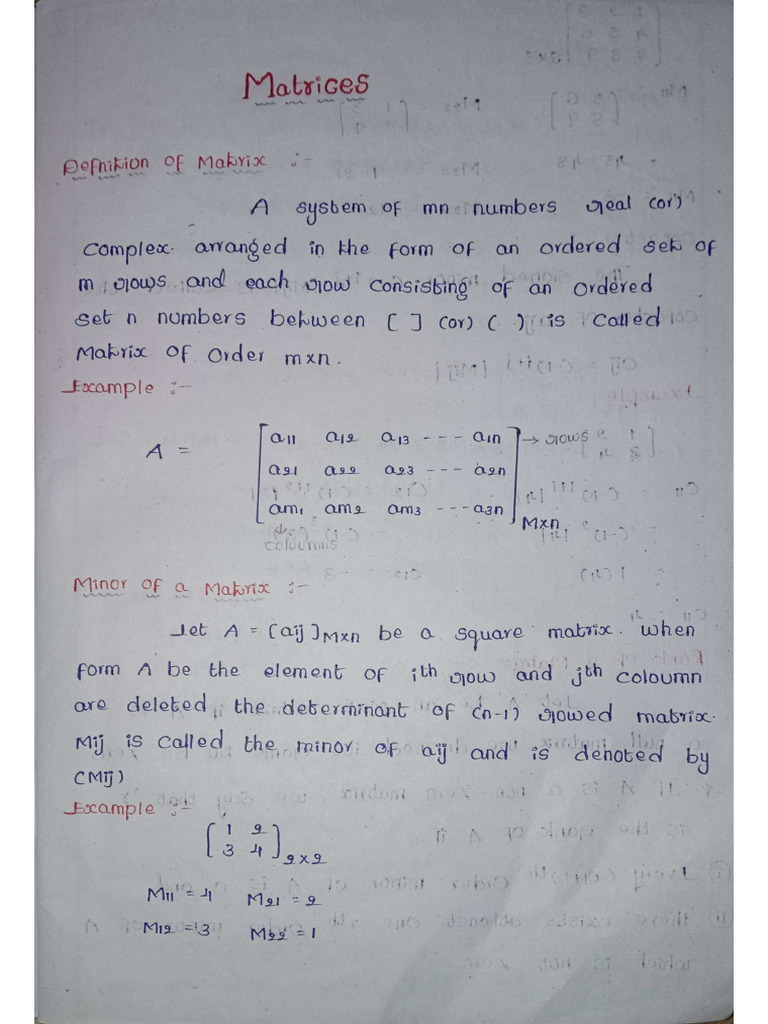 Matrices
Defnition of Matrix :-
A system of mn numbers real (or)
Complex arranged in the form of an ordered set of
m rows and each row consisting of an ordered
set n numbers between [ ] (or) ( ) is called
Matrix of order mxn.
Example :-
A = [ a11 a12 a13 --- a1n ] → rows
a21 a22 a23 --- a2n
am1 am2 am3 --- a3n
Mxn
↓
coloumns
Minor of a Matrix :-
Let A = [aij]Mxn be a square matrix. when
form A be the element of ith row and jth coloumn
are deleted, the determinant of (n-1) rowed matrix.
Mij is called the minor of aij and is denoted by
(Mij)
Example :-
[ 1 2
3 4 ]2x2
M11 = 4 M21 = 2
M12 = 3 M22 = 1